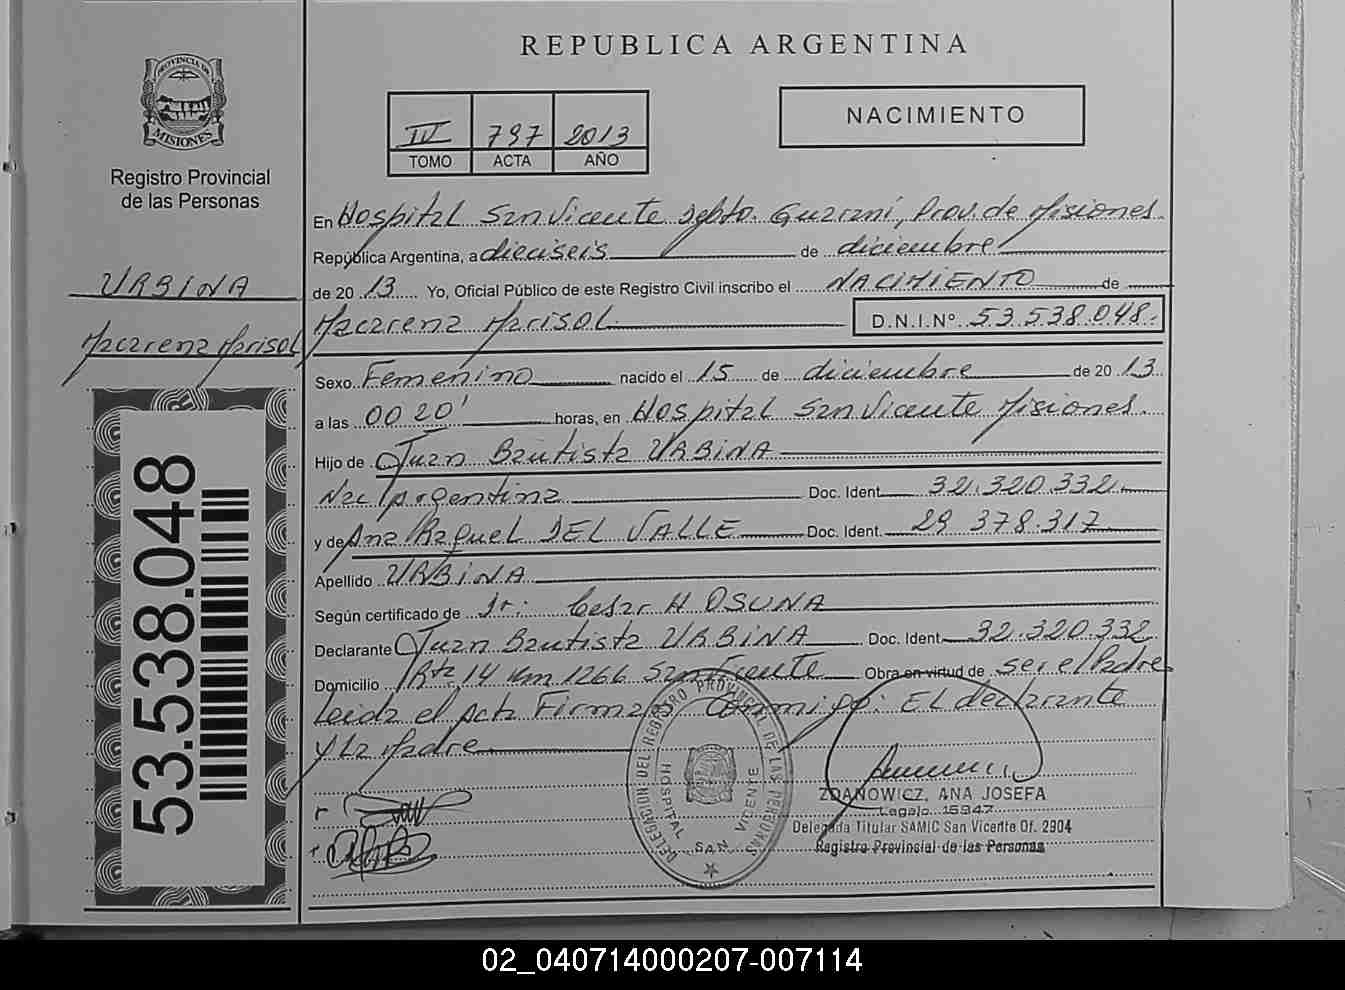 REPUBLICA ARGENTINA
PROVINCIA DE MISIONES
Registro Provincial
de las Personas
IV 797 2013
TOMO ACTA AÑO
NACIMIENTO
En Hospital San Vicente Depto. Guaraní, Prov. de Misiones.
República Argentina, a dieciseis de diciembre
de 20 13 Yo, Oficial Público de este Registro Civil inscribo el NACIMIENTO de
Macarena Marisol D.N.I.Nº 53.538.048.
URBINA
Macarena Marisol
53.538.048
Sexo Femenino nacido el 15 de diciembre de 20 13
a las 00 20' horas, en Hospital San Vicente Misiones.
Hijo de Juan Bautista URBINA
Nac Argentina Doc. Ident. 32.320.332
y de Ana Raquel DEL VALLE Doc. Ident. 29.378.317
Apellido URBINA
Según certificado de Dr: Cesar H OSUNA
Declarante Juan Bautista URBINA Doc. Ident. 32.320.332
Domicilio Rta 14 km 1266 San Vicente Obra en virtud de ser el Padre
Leida el Acta Firman Conmigo: El declarante
y la Madre
DELEGACION DEL REGISTRO PROVINCIAL DE LAS PERSONAS
HOSPITAL SAN VICENTE
ZDANOWICZ, ANA JOSEFA
Legajo 15947
Delegada Titular SAMIC San Vicente Of. 2904
Registro Provincial de las Personas
02_040714000207-007114